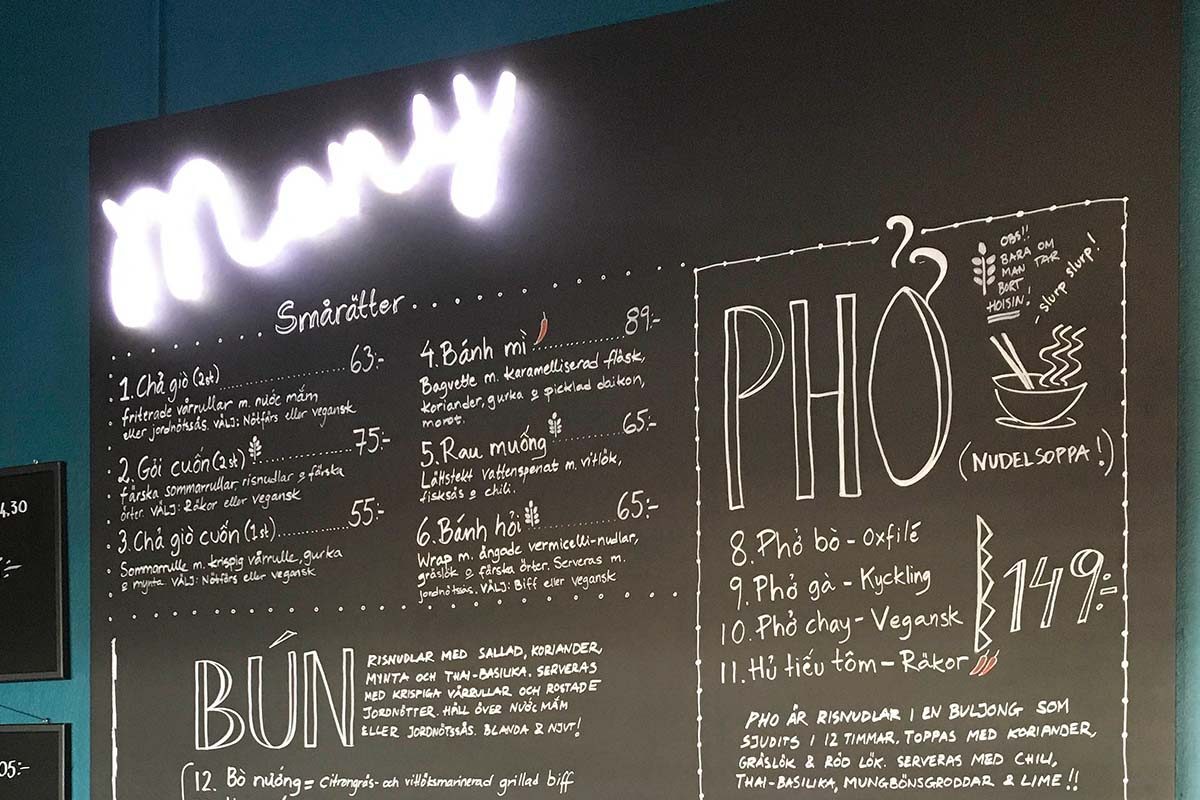 Mony
Smårätter
1. Chả giò (2st) 63:-
friterade vårrullar m. nước mắm
eller jordnötssås. VÄLJ: Nötfärs eller vegansk
2. Gỏi cuốn (2st) 75:-
färska sommarrullar, risnudlar & färska
örter. VÄLJ: Räkor eller vegansk
3. Chả giò cuốn (1st) 55:-
Sommarrulle m. krispig vårrulle, gurka
& mynta VÄLJ: Nötfärs eller vegansk
4. Bánh mì 89:-
Baguette m. karamelliserad fläsk,
koriander, gurka & picklad daikon,
morot.
5. Rau muống 65:-
Lättstekt vattenspenat m. vitlök,
fisksås & chili.
6. Bánh hỏi 65:-
Wrap m. ångade vermicelli-nudlar,
gräslök & färska örter. Serveras m.
jordnötssås. VÄLJ: Biff eller vegansk
PHỞ
OBS!!
BARA OM
MAN TAR
BORT
HOISIN!
slurp slurp!
(NUDELSOPPA!)
8. Phở bò - Oxfilé
9. Phở gà - Kyckling
10. Phở chay - Vegansk
11. Hủ tiếu tôm - Räkor
149:-
PHO ÄR RISNUDLAR I EN BULJONG SOM
SJUDITS I 12 TIMMAR. TOPPAS MED KORIANDER,
GRÄSLÖK & RÖD LÖK. SERVERAS MED CHILI,
THAI-BASILIKA, MUNGBÖNSGRODDAR & LIME!!
BÚN
RISNUDLAR MED SALLAD, KORIANDER,
MYNTA OCH THAI-BASILIKA. SERVERAS
MED KRISPIGA VÅRRULLAR OCH ROSTADE
JORDNÖTTER. HÄLL ÖVER NƯỚC MẮM
ELLER JORDNÖTSSÅS. BLANDA & NJUT!
12. Bò nướng = Citrongräs- och vitlöksmarinerad grillad biff
4.30
05:-